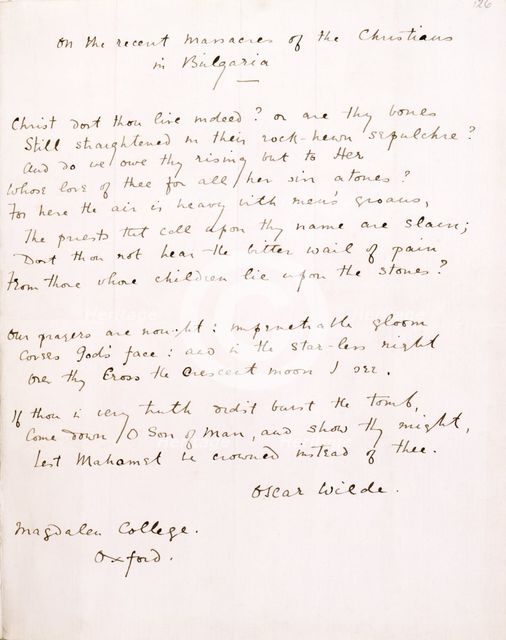 126
On the recent massacres of the Christians
in Bulgaria
Christ dost thou live indeed? or are thy bones
Still straightened in their rock-hewn sepulchre?
And do we owe thy rising but to Her
Whose love of thee for all her sin atones?
For here the air is heavy with men's groans,
The priests that call upon thy name are slain;
Dost thou not hear the bitter wail of pain
From those whose children lie upon the stones?
Our prayers are nought: impenetrable gloom
Covers God's face: and in the star-less night
Over thy Cross the Crescent moon I see.
If thou in very truth didst burst the tomb,
Come down, O Son of Man, and show thy might,
Lest Mahomet be crowned instead of thee.
Oscar Wilde.
Magdalen College.
Oxford.